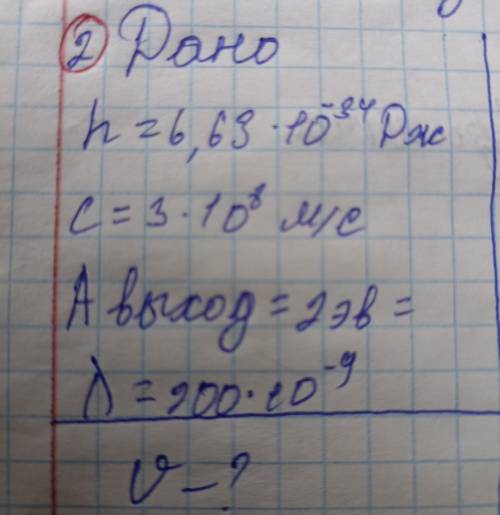 2 Дано
h = 6,63 · 10⁻³⁴ Дж
c = 3 · 10⁸ м/с
A выход = 2эв =
λ = 200 · 10⁻⁹
υ – ?